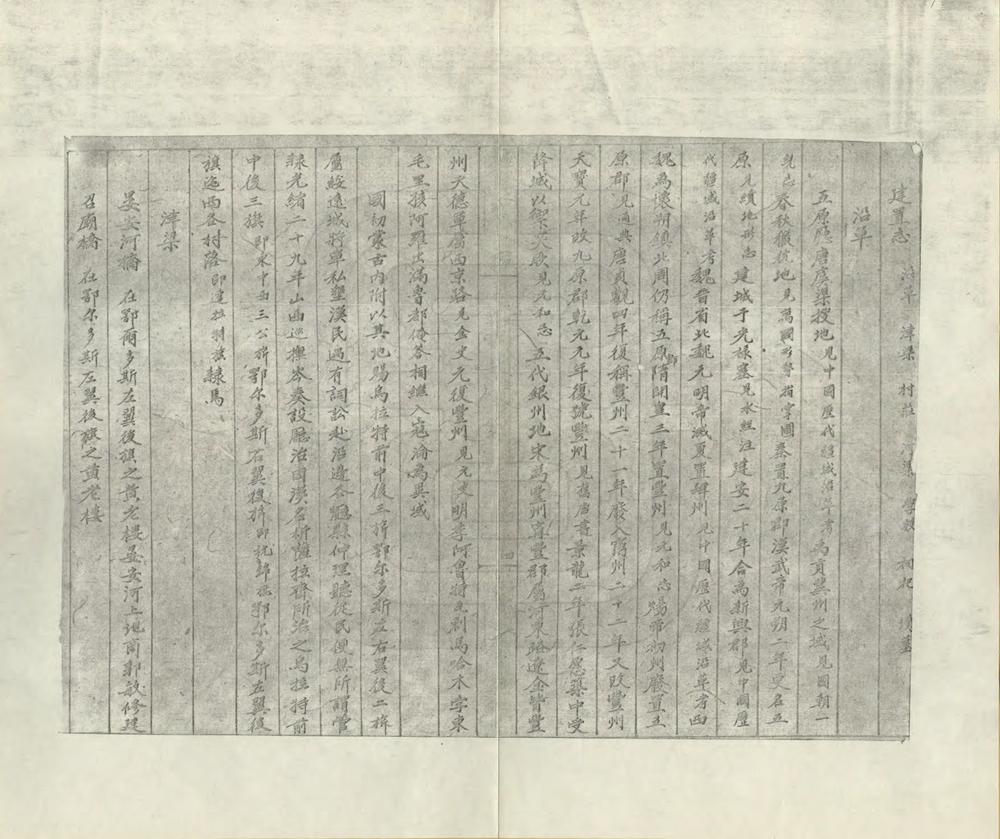 建置志　沿革　津梁　村莊　　學校　祠祀　墳墓
沿革
五原廳唐虞渠搜地見中國歷代疆域沿革考為貢冀州之域見國朝一
統志春秋獫狁地見萬國　　　省掌圖秦置九原郡漢武帝元朔二年更名五
原見續地形志建城于光祿塞見水經注建安二十年合為新興郡見中國歷
代疆域沿革考魏晉省北魏元明帝滅夏置朔州見中國歷代疆域沿革考西
魏為懷朔鎮北周仍稱五原隋開皇三年置豐州見元和志煬帝初州廢置五
原郡見通典唐貞觀四年復稱豐州二十一年廢入靈州二十二年又改豐州
天寶元年改九原郡乾元元年復號豐州見舊唐書景龍二年張仁愿築中受
降城以禦突厥見元和志五代銀州地宋為豐州　豐郡屬河東路遼金皆豐
州天德軍屬西京路見金史元復豐州見元史明季阿魯特　　馬哈木字東
毛里孩阿羅出滿魯都俺答相繼入寇淪為異域
國初蒙古內附以其地賜烏拉特前中後三旂鄂尔多斯左右翼後二旂
屬綏遠城將軍私墾漢民遇有詞訟赴沿邊各廳縣仰理聽從民便無所謂管
隸光緒二十九年山西巡撫岑奏設廳治因漢名析薩拉齊所治之烏拉特前
中後三旂即東中西三公旂鄂尔多斯右翼後旂即杭錦旂鄂尔多斯左翼後
旗迤西各村落即達拉特旗隸焉
津梁
晏安河橋　在鄂爾多斯左翼後旗之黄老楼晏安河上地商郭敏修建
召廟橋　在鄂尔多斯左翼後旗之黄老樓